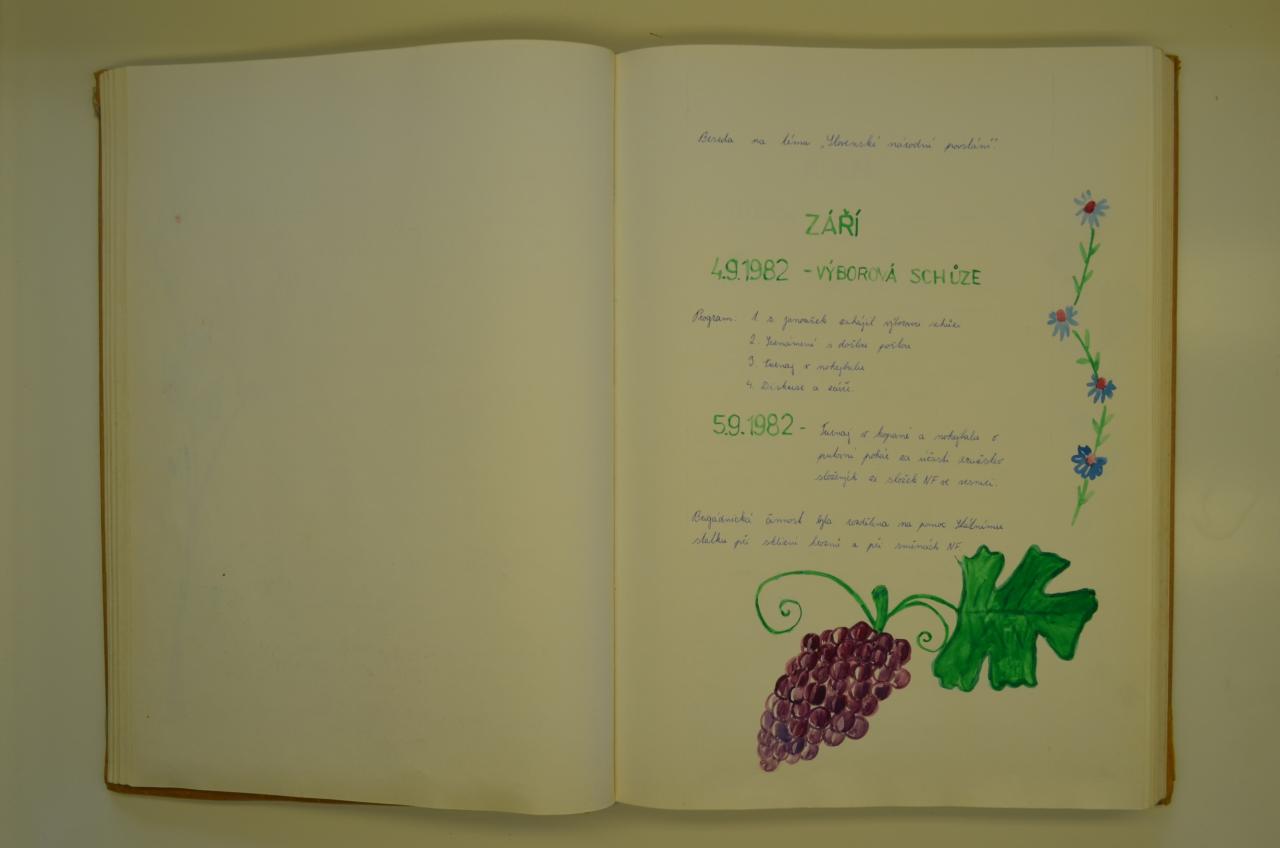 Beseda na téma „Slovenské národní povstání".
ZÁŘÍ
4.9.1982 - VÝBOROVÁ SCHŮZE
Program: 1. s. Janoušek zahájil výborovou schůzi
2. Seznámení s došlou poštou
3. Turnaj v nohejbalu
4. Diskuse a závěr.
5.9.1982 - Turnaj v kopané a nohejbalu o
putovní pohár za účasti družstev
složených ze složek NF ve vesnici.
Brigádnická činnost byla rozdělena na pomoc Státnímu
statku při sklizni hroznů a při směnách NF.